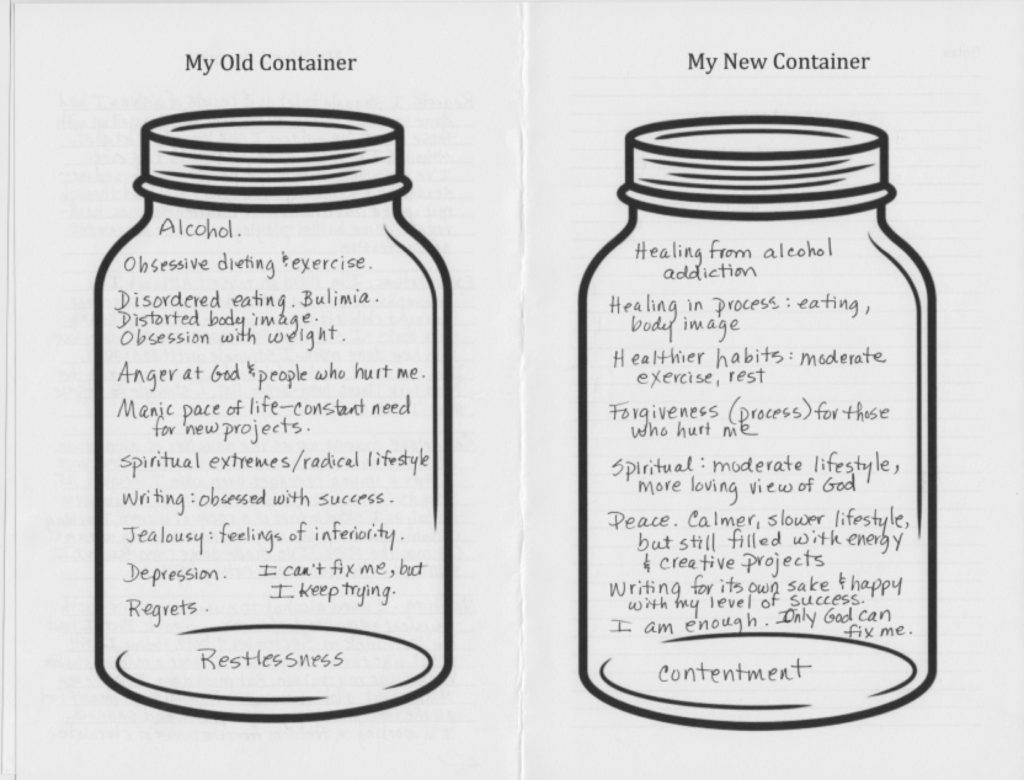 My Old Container
Alcohol.
Obsessive dieting & exercise.
Disordered eating. Bulimia.
Distorted body image.
Obsession with weight.
Anger at God & people who hurt me.
Manic pace of life—constant need
for new projects.
Spiritual extremes/radical lifestyle
Writing: obsessed with success.
Jealousy: feelings of inferiority.
Depression. I can't fix me, but
I keep trying.
Regrets.
Restlessness
My New Container
Healing from alcohol
addiction
Healing in process: eating,
body image
Healthier habits: moderate
exercise, rest
Forgiveness (process) for those
who hurt me
Spiritual: moderate lifestyle,
more loving view of God
Peace. Calmer, slower lifestyle,
but still filled with energy
& creative projects
Writing for its own sake & happy
with my level of success.
I am enough. Only God can
fix me.
Contentment